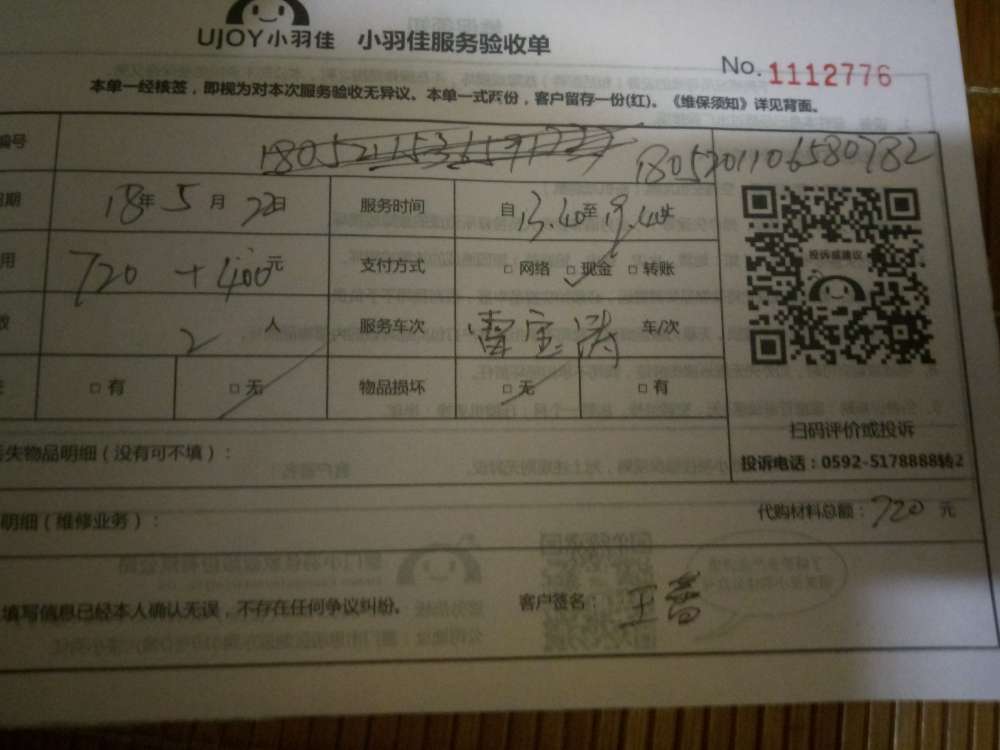 UJOY小羽佳 小羽佳服务验收单
No. 1112776
本单一经核签，即视为对本次服务验收无异议。本单一式两份，客户留存一份(红)。《维保须知》详见背面。
编号 1805201106580782
日期 18年5月22日 服务时间 自13.40至19.40
用 720+400元 支付方式 □网络 □现金 □转账
投诉或建议
数 2人 服务车次 车/次
□有 □无 物品损坏 □无 □有
扫码评价或投诉
丢失物品明细（没有可不填）：
投诉电话：0592-5178888转2
明细（维修业务）：
代购材料总额：720元
填写信息已经本人确认无误，不存在任何争议纠纷。 客户签名：